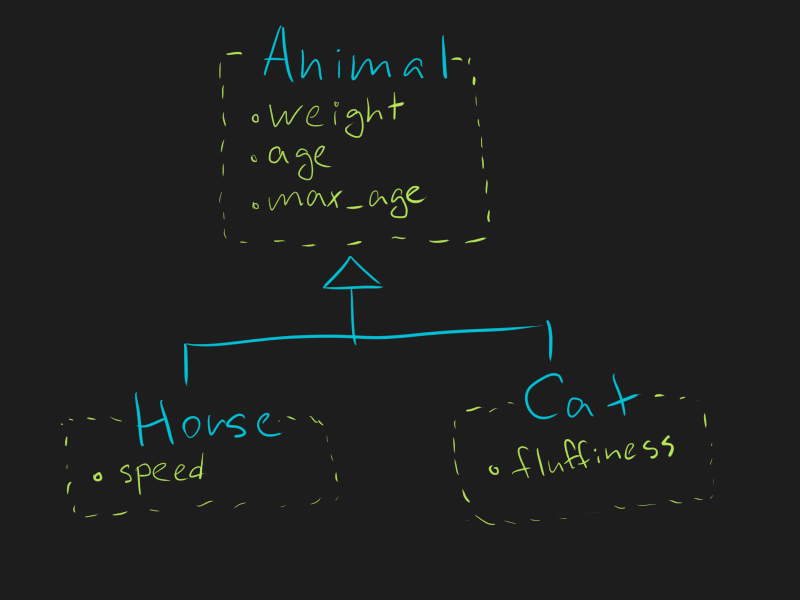 Animal
• weight
• age
• max_age
Horse
• speed
Cat
• fluffiness